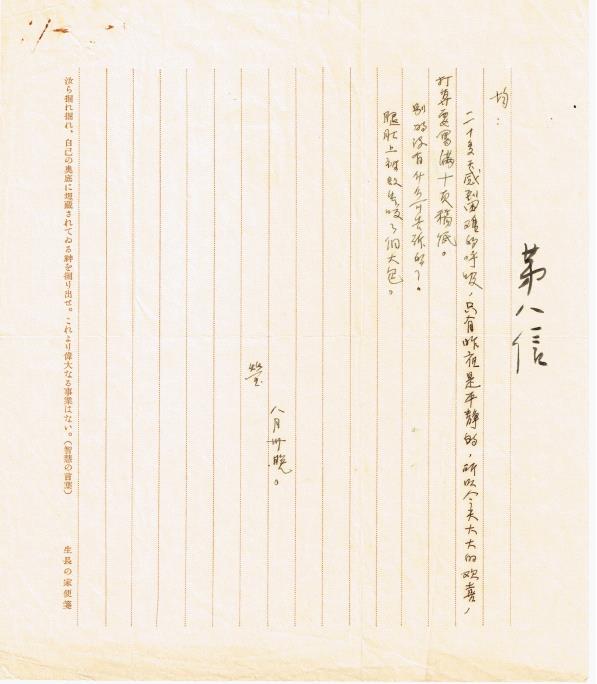 第八信
均：
二十多天感到困难的呼吸，只有昨夜是平静的，所以今天大大的欢喜，
打算要写满十页稿纸。
别的没有什么可告诉的了。
腿肚上被蚊虫咬了个大包。
莹
八月卅晚。
汝ら掘れ掘れ。自己の奥底に埋蔵されてゐる神を掘り出せ。これより偉大なる事業はない。（智慧の言葉）
生長の家便箋